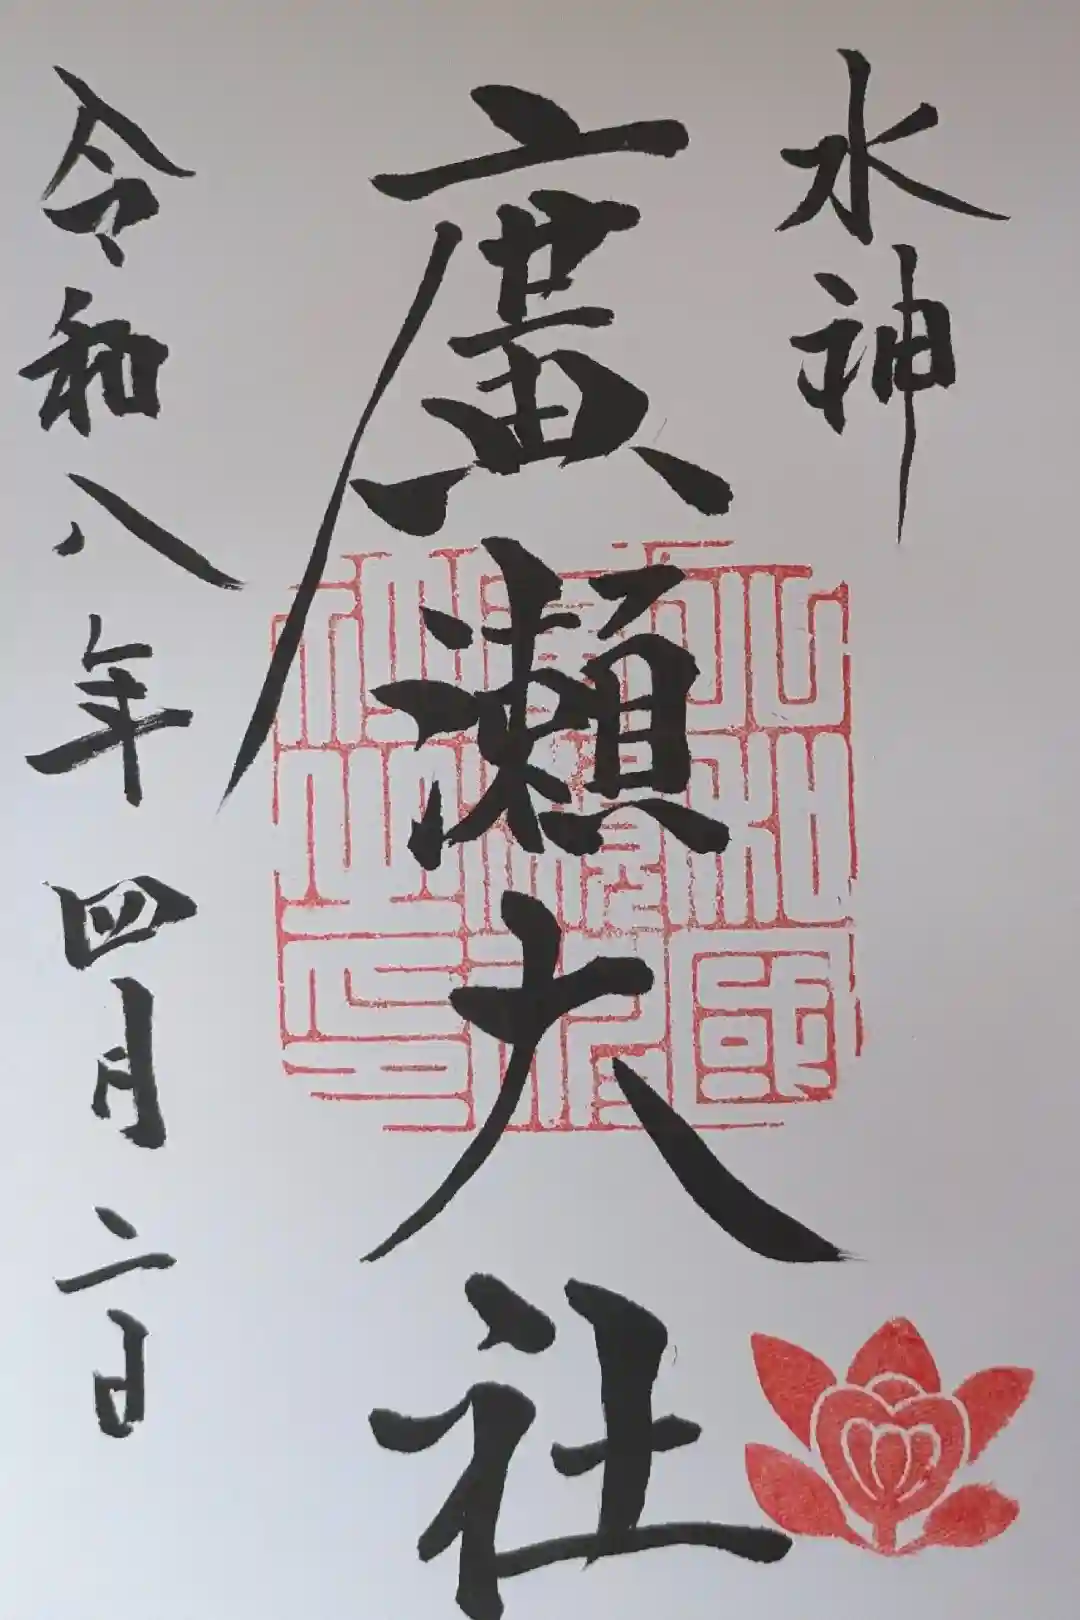 水神
廣瀬大社
令和八年四月二日